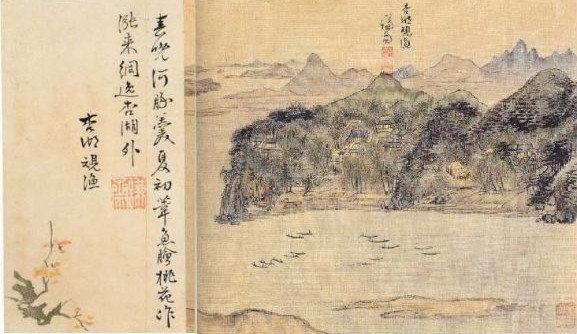 春晚河豚羹夏初葦魚膾桃花作
漲來網逸杏湖外
杏湖觀漁
杏湖觀漁
謙齋